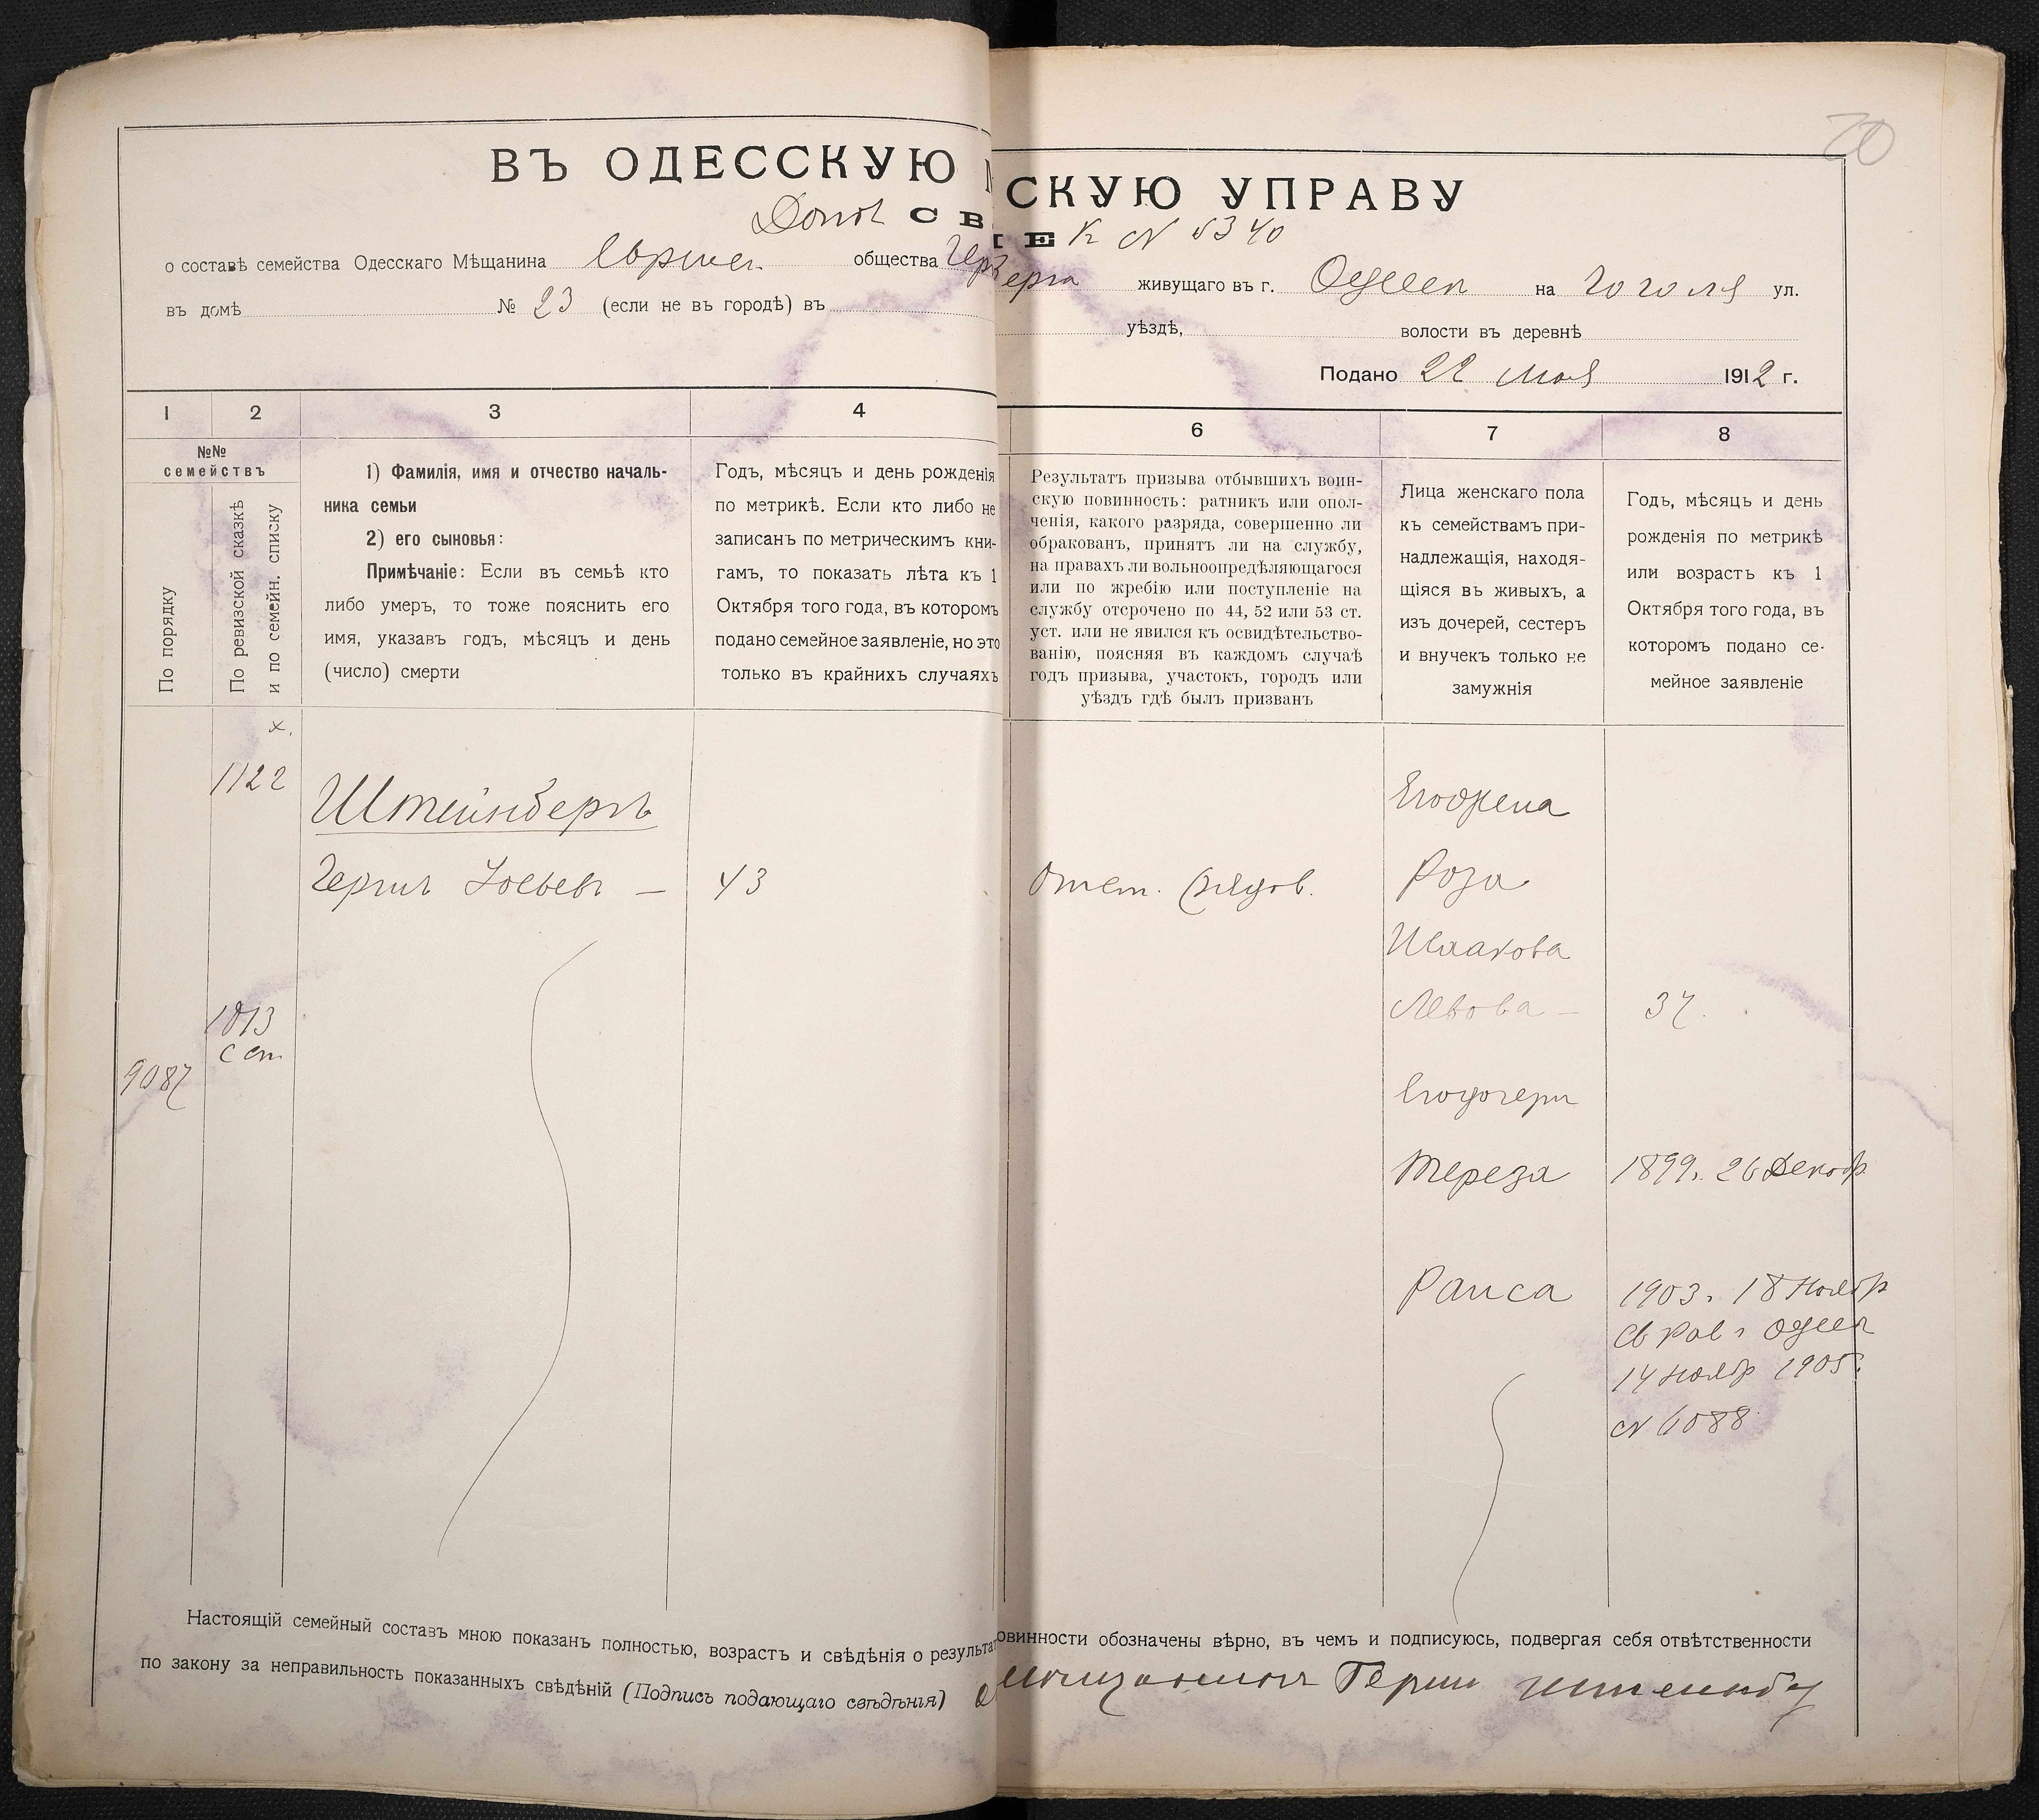 20
ВЪ ОДЕССКУЮ
СКУЮ УПРАВУ
СВ
К N 5340
о составѣ семейства Одесскаго Мѣщанина Еврей. общества
живущаго въ г. Одессѣ на Гоголя ул.
въ домѣ № 23 (если не въ городѣ) въ
уѣздѣ, волости въ деревнѣ
Подано 22 мая 1912 г.
1 2 3 4
6 7 8
№№
семействъ
По порядку
По ревизской сказкѣ
и по семейн. списку
1) Фамилія, имя и отчество началь-
ника семьи
2) его сыновья:
Примѣчаніе: Если въ семьѣ кто
либо умеръ, то тоже пояснить его
имя, указавъ годъ, мѣсяцъ и день
(число) смерти
Годъ, мѣсяцъ и день рожденія
по метрикѣ. Если кто либо не
записанъ по метрическимъ кни-
гамъ, то показать лѣта къ 1
Октября того года, въ которомъ
подано семейное заявленіе, но это
только въ крайнихъ случаяхъ
Результатъ призыва отбывшихъ воин-
скую повинность: ратникъ или опол-
ченія, какого разряда, совершенно ли
обракованъ, принятъ ли на службу,
на правахъ ли вольноопредѣляющагося
или по жребію или поступленіе на
службу отсрочено по 44, 52 или 53 ст.
уст. или не явился къ освидѣтельство-
ванію, поясняя въ каждомъ случаѣ
годъ призыва, участокъ, городъ или
уѣздъ гдѣ былъ призванъ
Лица женскаго пола
къ семействамъ при-
надлежащія, находя-
щіяся въ живыхъ, а
изъ дочерей, сестеръ
и внучекъ только не
замужнія
Годъ, мѣсяцъ и день
рожденія по метрикѣ
или возрастъ къ 1
Октября того года, въ
которомъ подано се-
мейное заявленіе
х.
1122
Штейнбергъ
Гершъ Іосьевъ — 43
Отст. рядов.
1013
9087
Его жена
Роза
Исаакова
Львова — 37.
Его дочери
Тереза 1899. 26 Декабр
Раиса 1903. 18 Ноябр
Св Рав г Одес
14 Ноябр 1905.
N 6088
Настоящій семейный составъ мною показанъ полностью, возрастъ и свѣдѣнія о результат
овинности обозначены вѣрно, въ чемъ и подписуюсь, подвергая себя отвѣтственности
по закону за неправильность показанныхъ свѣдѣній (Подпись подающаго свѣдѣнія)
Герш